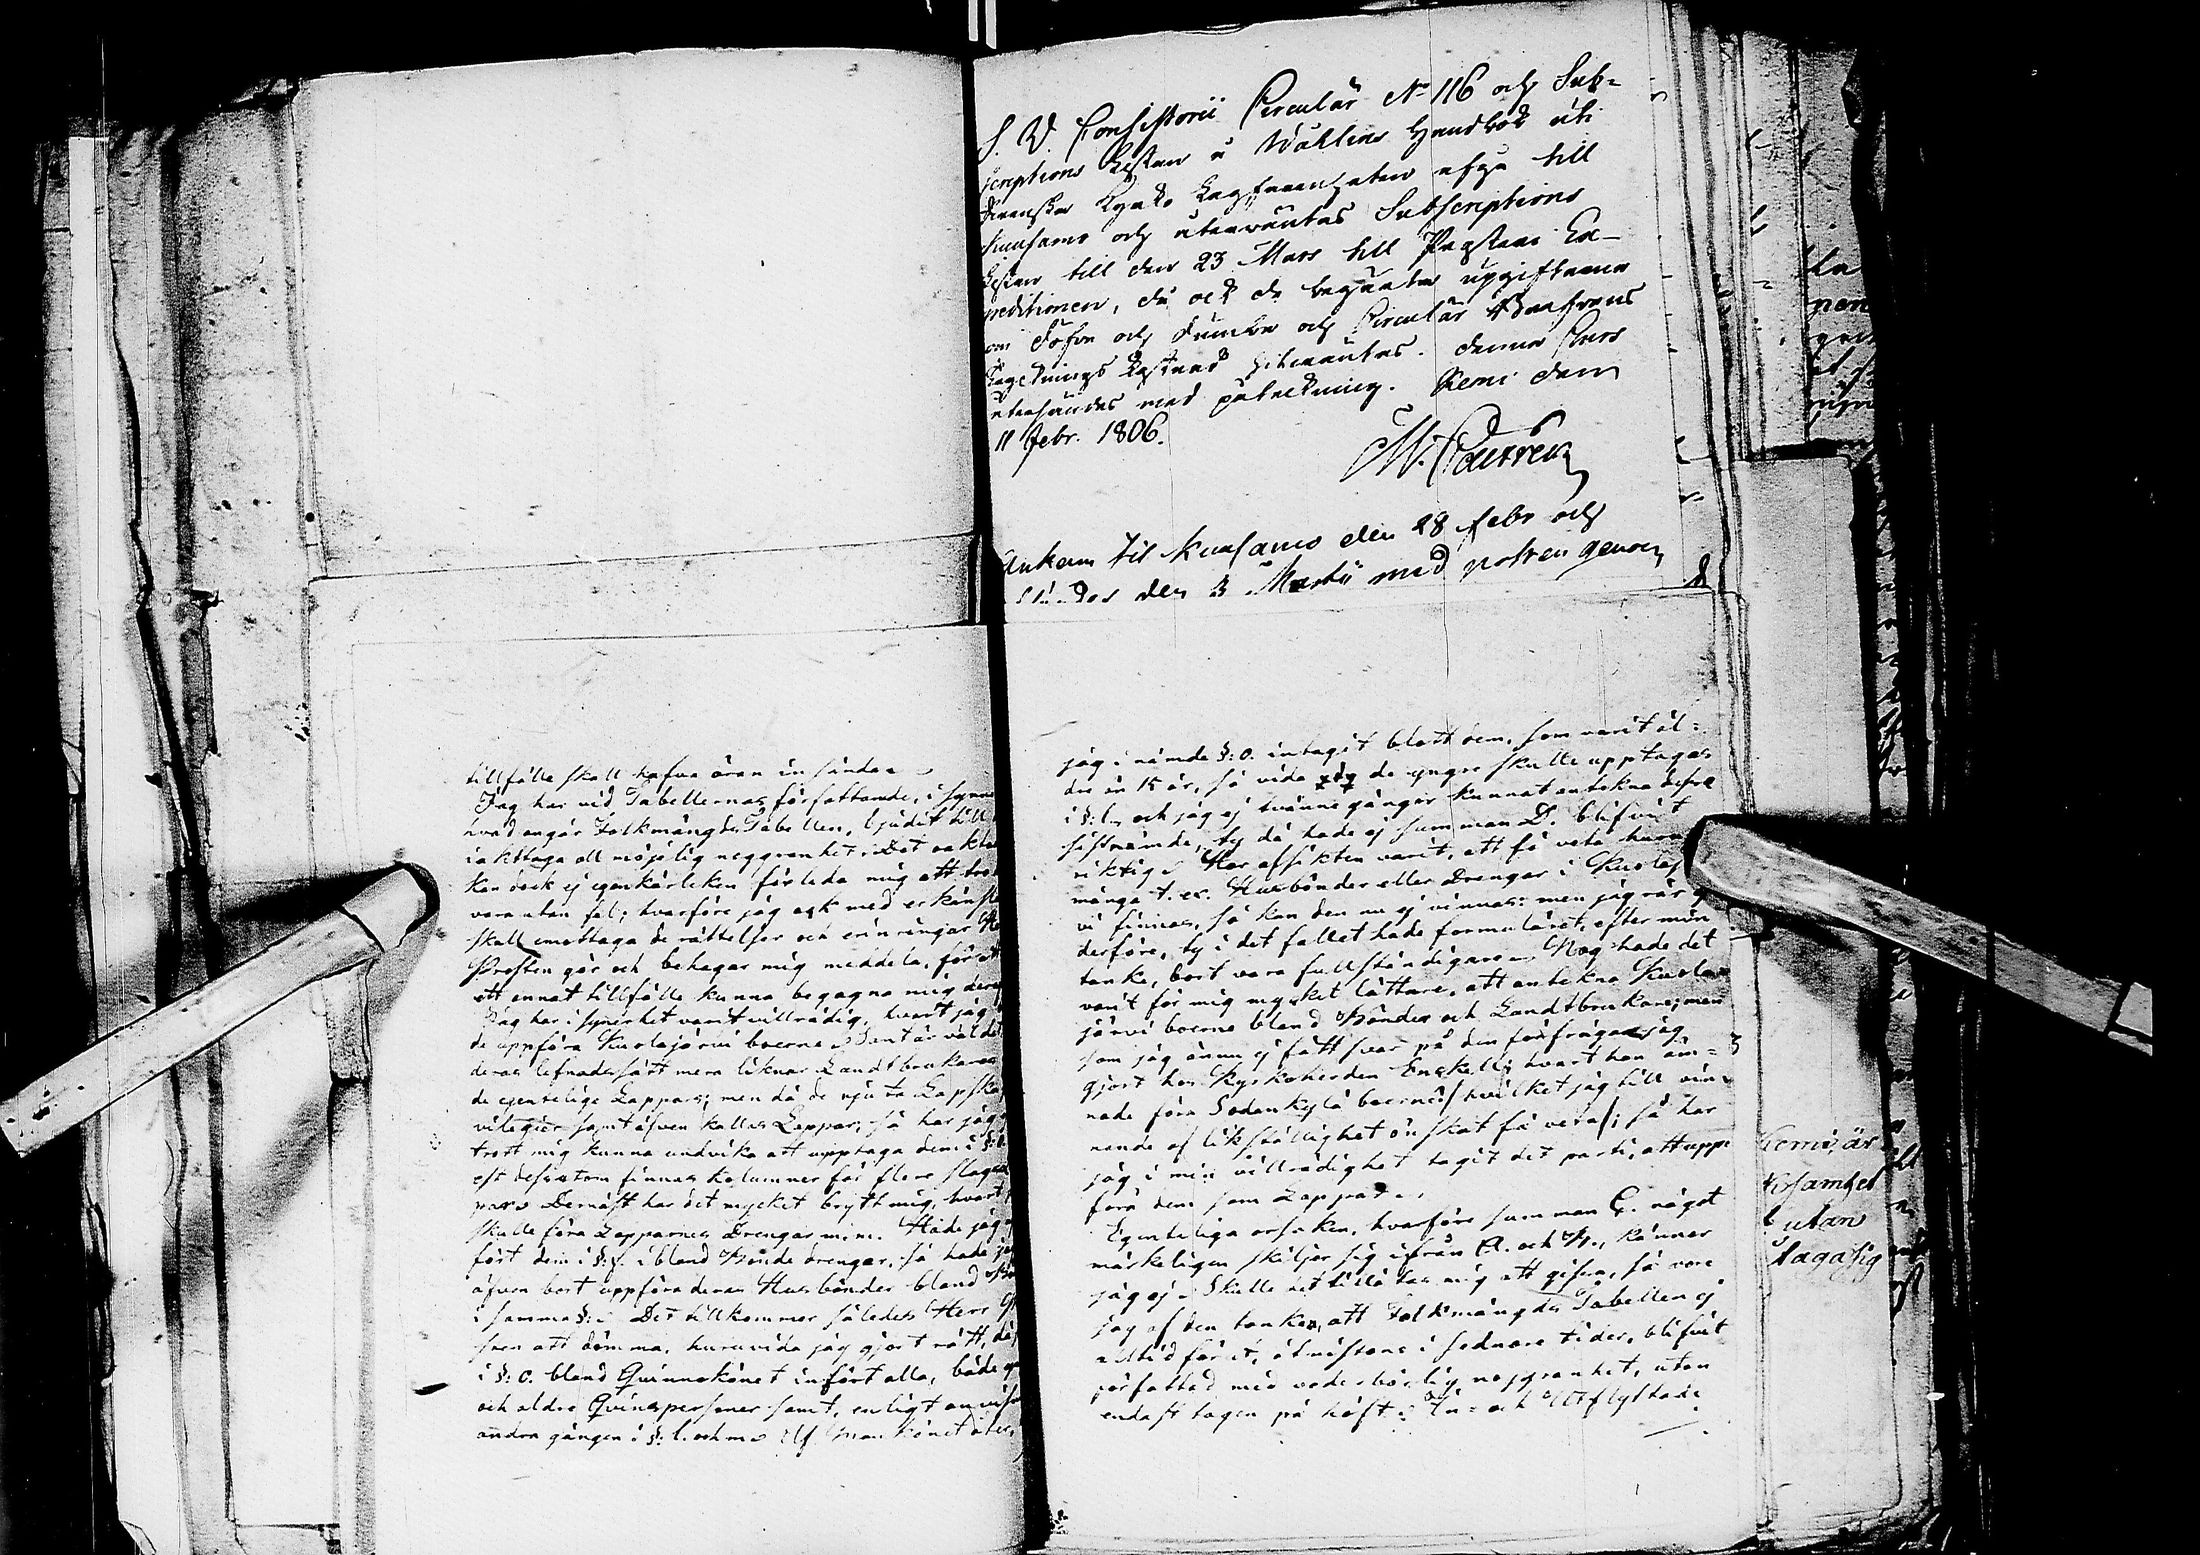 S. V. Consistorii Circulär No 116 och Sub-
scriptions Listan å Wåhlins Handbok uti
Svenska Kyrko Lagfarenheten afgå till
Kuusamo och återväntas Subscriptions
Listan till den 23 Mars till Prostens Ex-
peditionen, då ock de begärta upgifterna
om Döfva och Dumba och Circulär
Kostnad hitväntas. Denna Curs
återsändes med påteckning. Kemi den
11 Febr. 1806.
M. Castrén
Ankom til Kuusamo den 28 Febr och
sändes den 3 Martii med posten genom
tillfälle skall hafva äran insända.
Jag har vid Tabellernas författande, i synner
hvad angår Folkmängds Tabellen, bjudit till
iakttaga all möjelig noggranhet. Det oaktadt
kan dock ej egenkärleken förleda mig att tro
vara utan fel; hvarföre jag ock med erkänsla
skall emottaga de rättelser och erinringar H
Prosten gör och behagar mig meddela, för att
ett annat tillfälle kunna begagna mig deraf
Jag har i synerhet varit villrådig, hvart jag
de uppföra Kuolajärvi boerne. Sant är väl det
deras lefnadssätt mera liknar Landtbrukares
de egentelige Lappars; men då de njuta Lapska
vilegier samt äfven kallas Lappar, så har jag
trott mig kunna undvika att upptaga dem i §:
est dessutom finnas kolumner för flere slags
pare. Dernäst har det mycket brytt mig, hvart
skulle föra Lapparnes Drengar m.m. Hade jag
fört dem i §: f. ibland Bonde drengar, så hade jag
äfven bort uppföra deras Husbönder bland Bö
i samma §: Det tillkommer således Herr
sten att dömma, huruvida jag gjort rätt, då
i §: o. bland Qvinnokönet infört alla, både
och äldre Qvinspersoner samt, enligt anvisn
andra gången i §: l. och m. Af Mankönet åter,
jag i nämde §: o. intagit blott dem, som varit äl=
dre än 15 år, så vida de yngre skulle upptagas
i §: l. och jag ej tvänne gånger kunnat antekna desse
sistnämde, ty då hade ej summan D. blifvit
riktig. Har afsikten varit, att få veta huru
många t. ex. Husbönder eller Drengar i Kuolaj
vi finnas, så kan den nu ej vinnas: men jag rår ej
derföre, ty i det fallet hade formuläret, efter min
tanke, bort vara fullständigare. Nog hade det
varit för mig mycket lättare, att antekna Kuola
järvi boerne bland Bönder och Landtbrukare; men
som jag ännu ej fått svar på den förfrågan jag
gjort hos Kyrkoherden Enckell; hvart han äm=
nade föra Sodankylä boerne / hvilket jag till vin=
nande af likställighet önskat få veta /; så har
jag i min villrådighet tagit det parti, att upp
föra dem som Lappar.
Egenteliga orsaken, hvarföre summan C. något
märkeligen skiljer sig ifrån A. och B., känner
jag ej. Skulle det tillåtas mig att gissa, så vore
jag af den tanken, att Folkmängds Tabellen ej
alltid förut, åtminstone i sednare tider, blifvit
författad med vederbörlig noggranhet, utan
endast tagen på höft. In= och Utflyttade
Kemi, är
utan